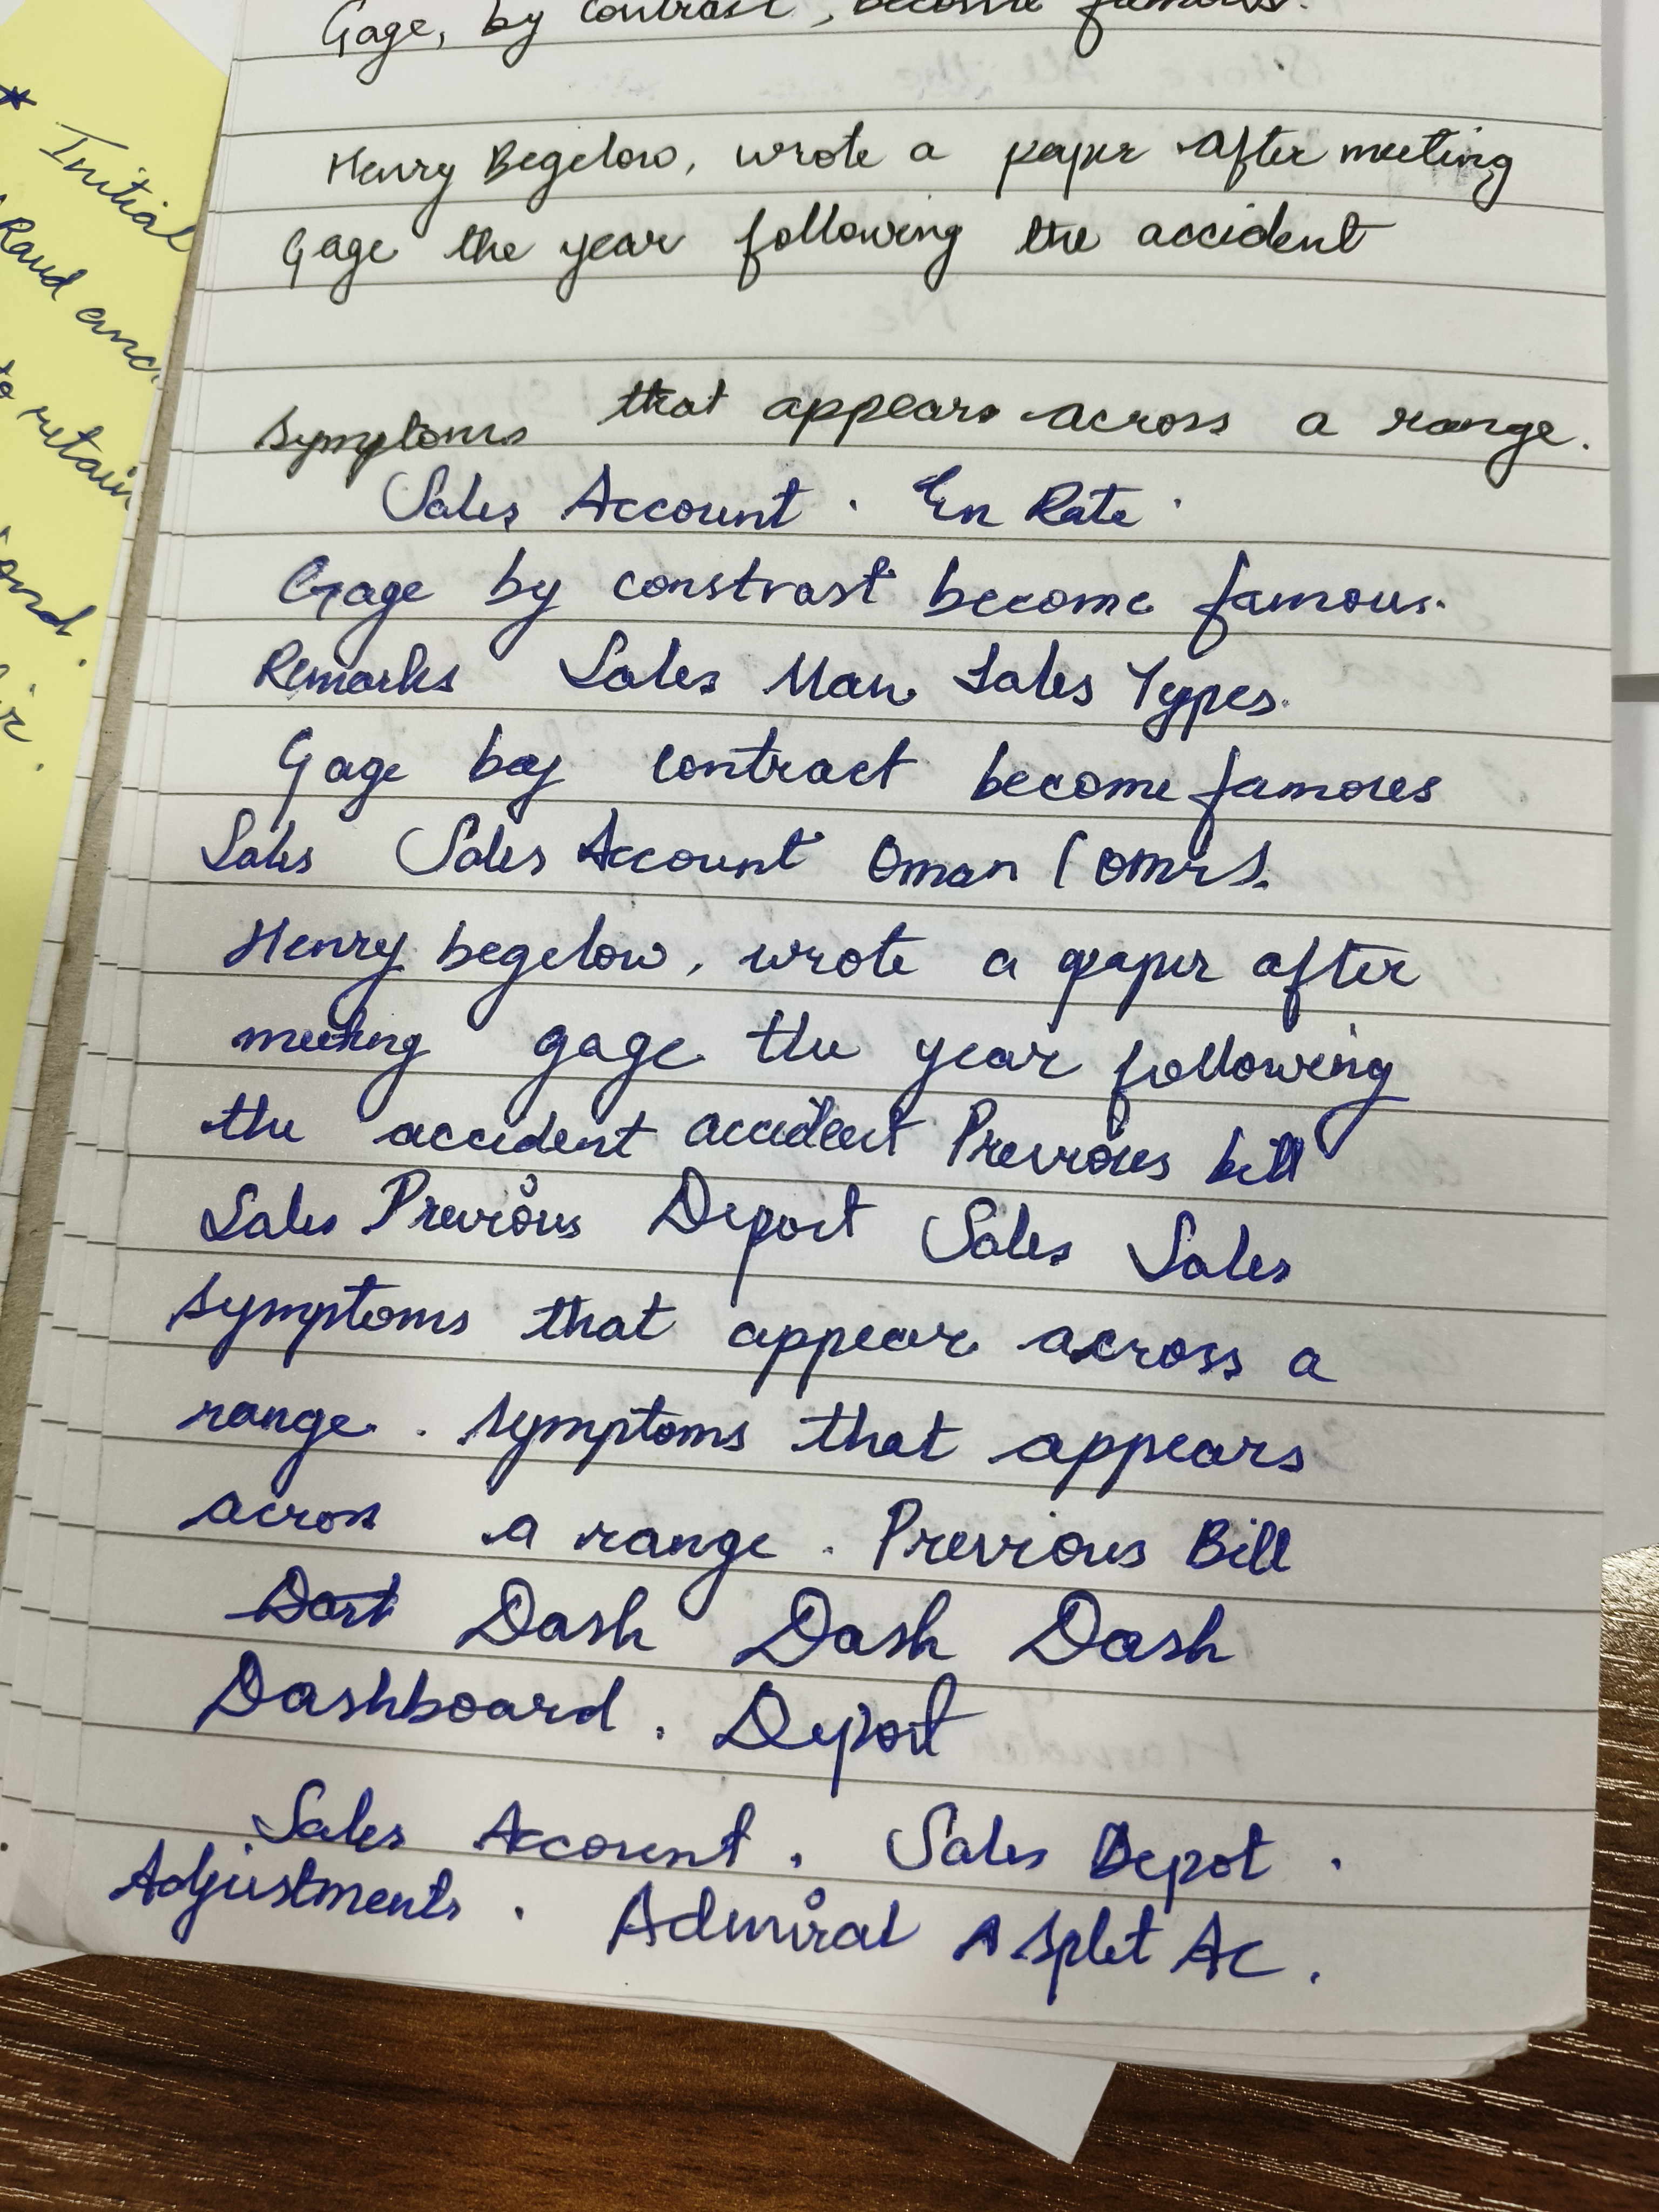 Gage, by contrast, become famous.
Henry Begelow, wrote a paper after meeting
Gage the year following the accident
symptoms that appears across a range.
Sales Account. En Rate.
Gage by constrast become famous.
Remarks Sales Man Sales Types.
Gage by contract become famoues
Sales Sales Account Oman (OMR).
Henry begelow, wrote a paper after
meeting gage the year following
the accident accident Previous bill
Sales Previous Deport Sales Sales
symptoms that appear across a
range. symptoms that appears
across a range. Previous Bill
Dash Dash Dash
Dashboard. Deport
Sales Account. Sales Depot.
Adjustments. Admiral A split AC.
* Initial
Raud and
to retain
ond.
ir.